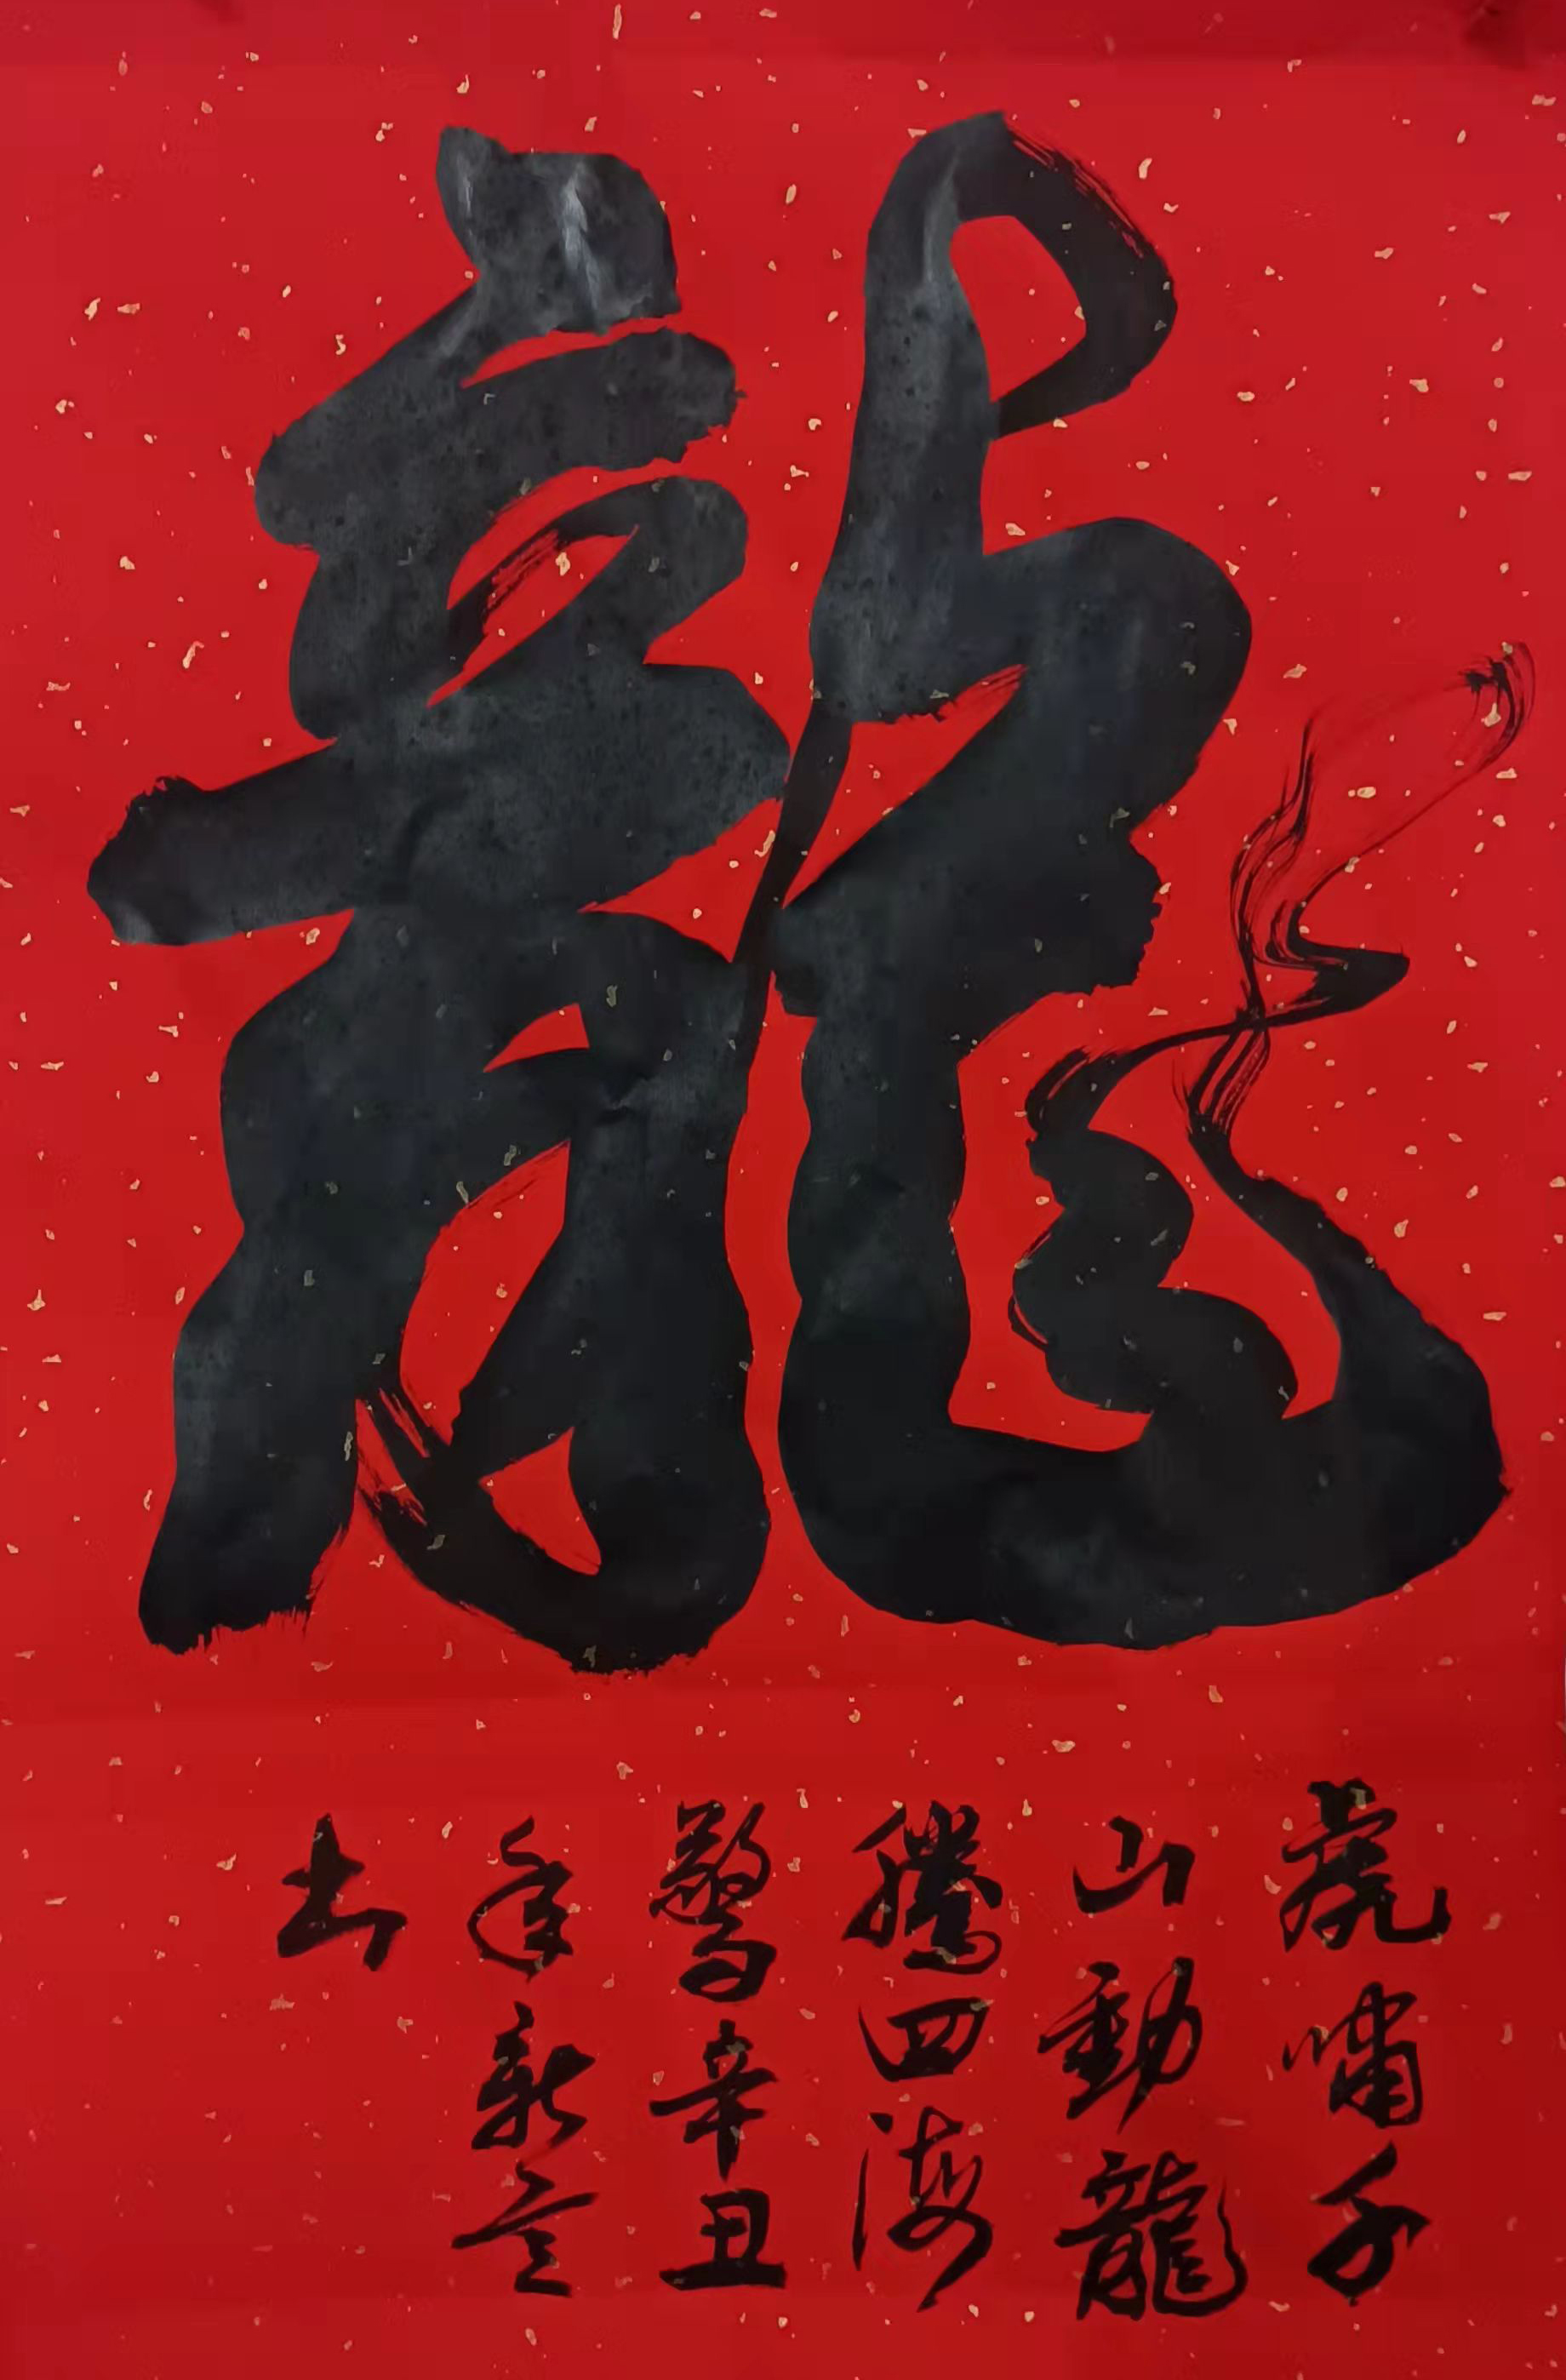 龍
虎嘯千
山動龍
騰四海
驚辛丑
年新
書